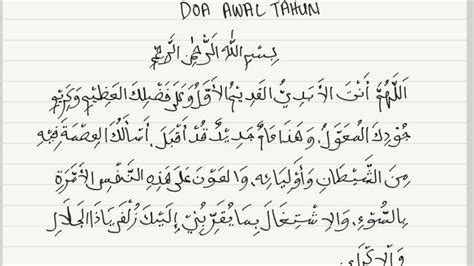 DOA AWAL TAHUN
بِسْمِ اللهِ الرَّحْمٰنِ الرَّحِيْمِ
اَللّٰهُمَّ أَنْتَ الأَبَدِيُّ القَدِيمُ الأَوَّلُ وَعَلَى فَضْلِكَ العَظِيْمِ وَكَرِيْمِ
جُوْدِكَ المُعَوَّلُ. وَهٰذَا عَامٌ جَدِيْدٌ قَدْ أَقْبَلَ. أَسْأَلُكَ العِصْمَةَ فِيْهِ
مِنَ الشَّيْطَانِ وَأَوْلِيَائِهِ. وَالعَوْنَ عَلَى هٰذِهِ النَّفْسِ الأَمَّارَةِ
بِالسُّوْءِ. وَالاِشْتِغَالَ بِمَا يُقَرِّبُنِيْ إِلَيْكَ زُلْفَى يَا ذَا الجَلَالِ
وَالإِكْرَامِ